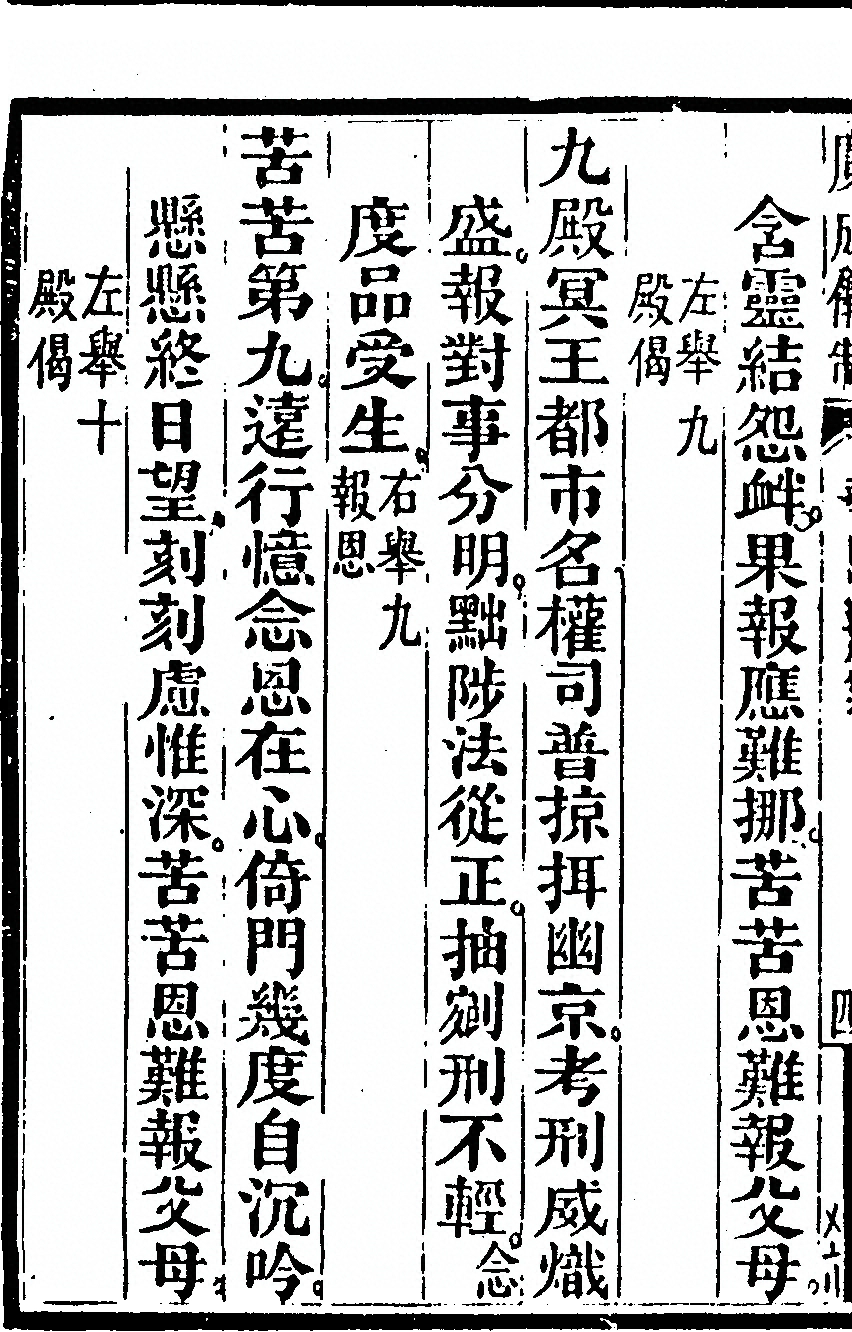 廣成儀制
四
含靈結怨衅。果報應難挪。苦苦恩難報父母。
左舉九
殿偈
九殿冥王都市名。權司普掠挕幽京。考刑威熾
盛。報對事分明。黜陟法從正。抽剜刑不輕。念
度品受生。
右舉九
報恩
苦苦第九。遠行憶念恩在心。倚門幾度自沉吟。
懸懸終日望。刻刻慮惟深。苦苦恩難報父母。
左舉十
殿偈